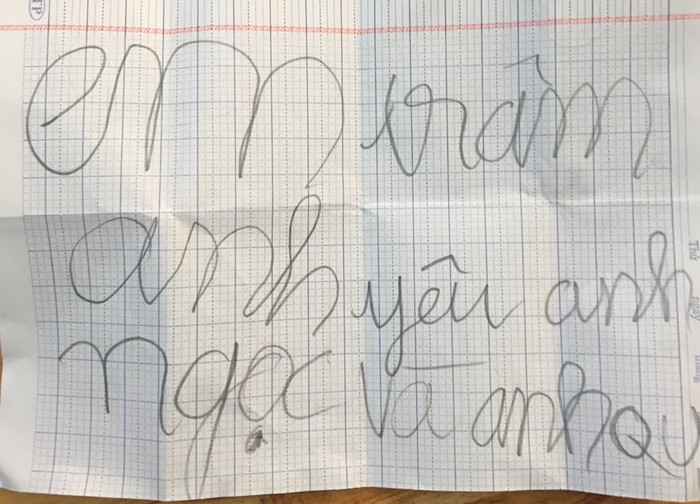 em trâm
anh yêu anh
ngọc và anh Qu
TP
Thứ